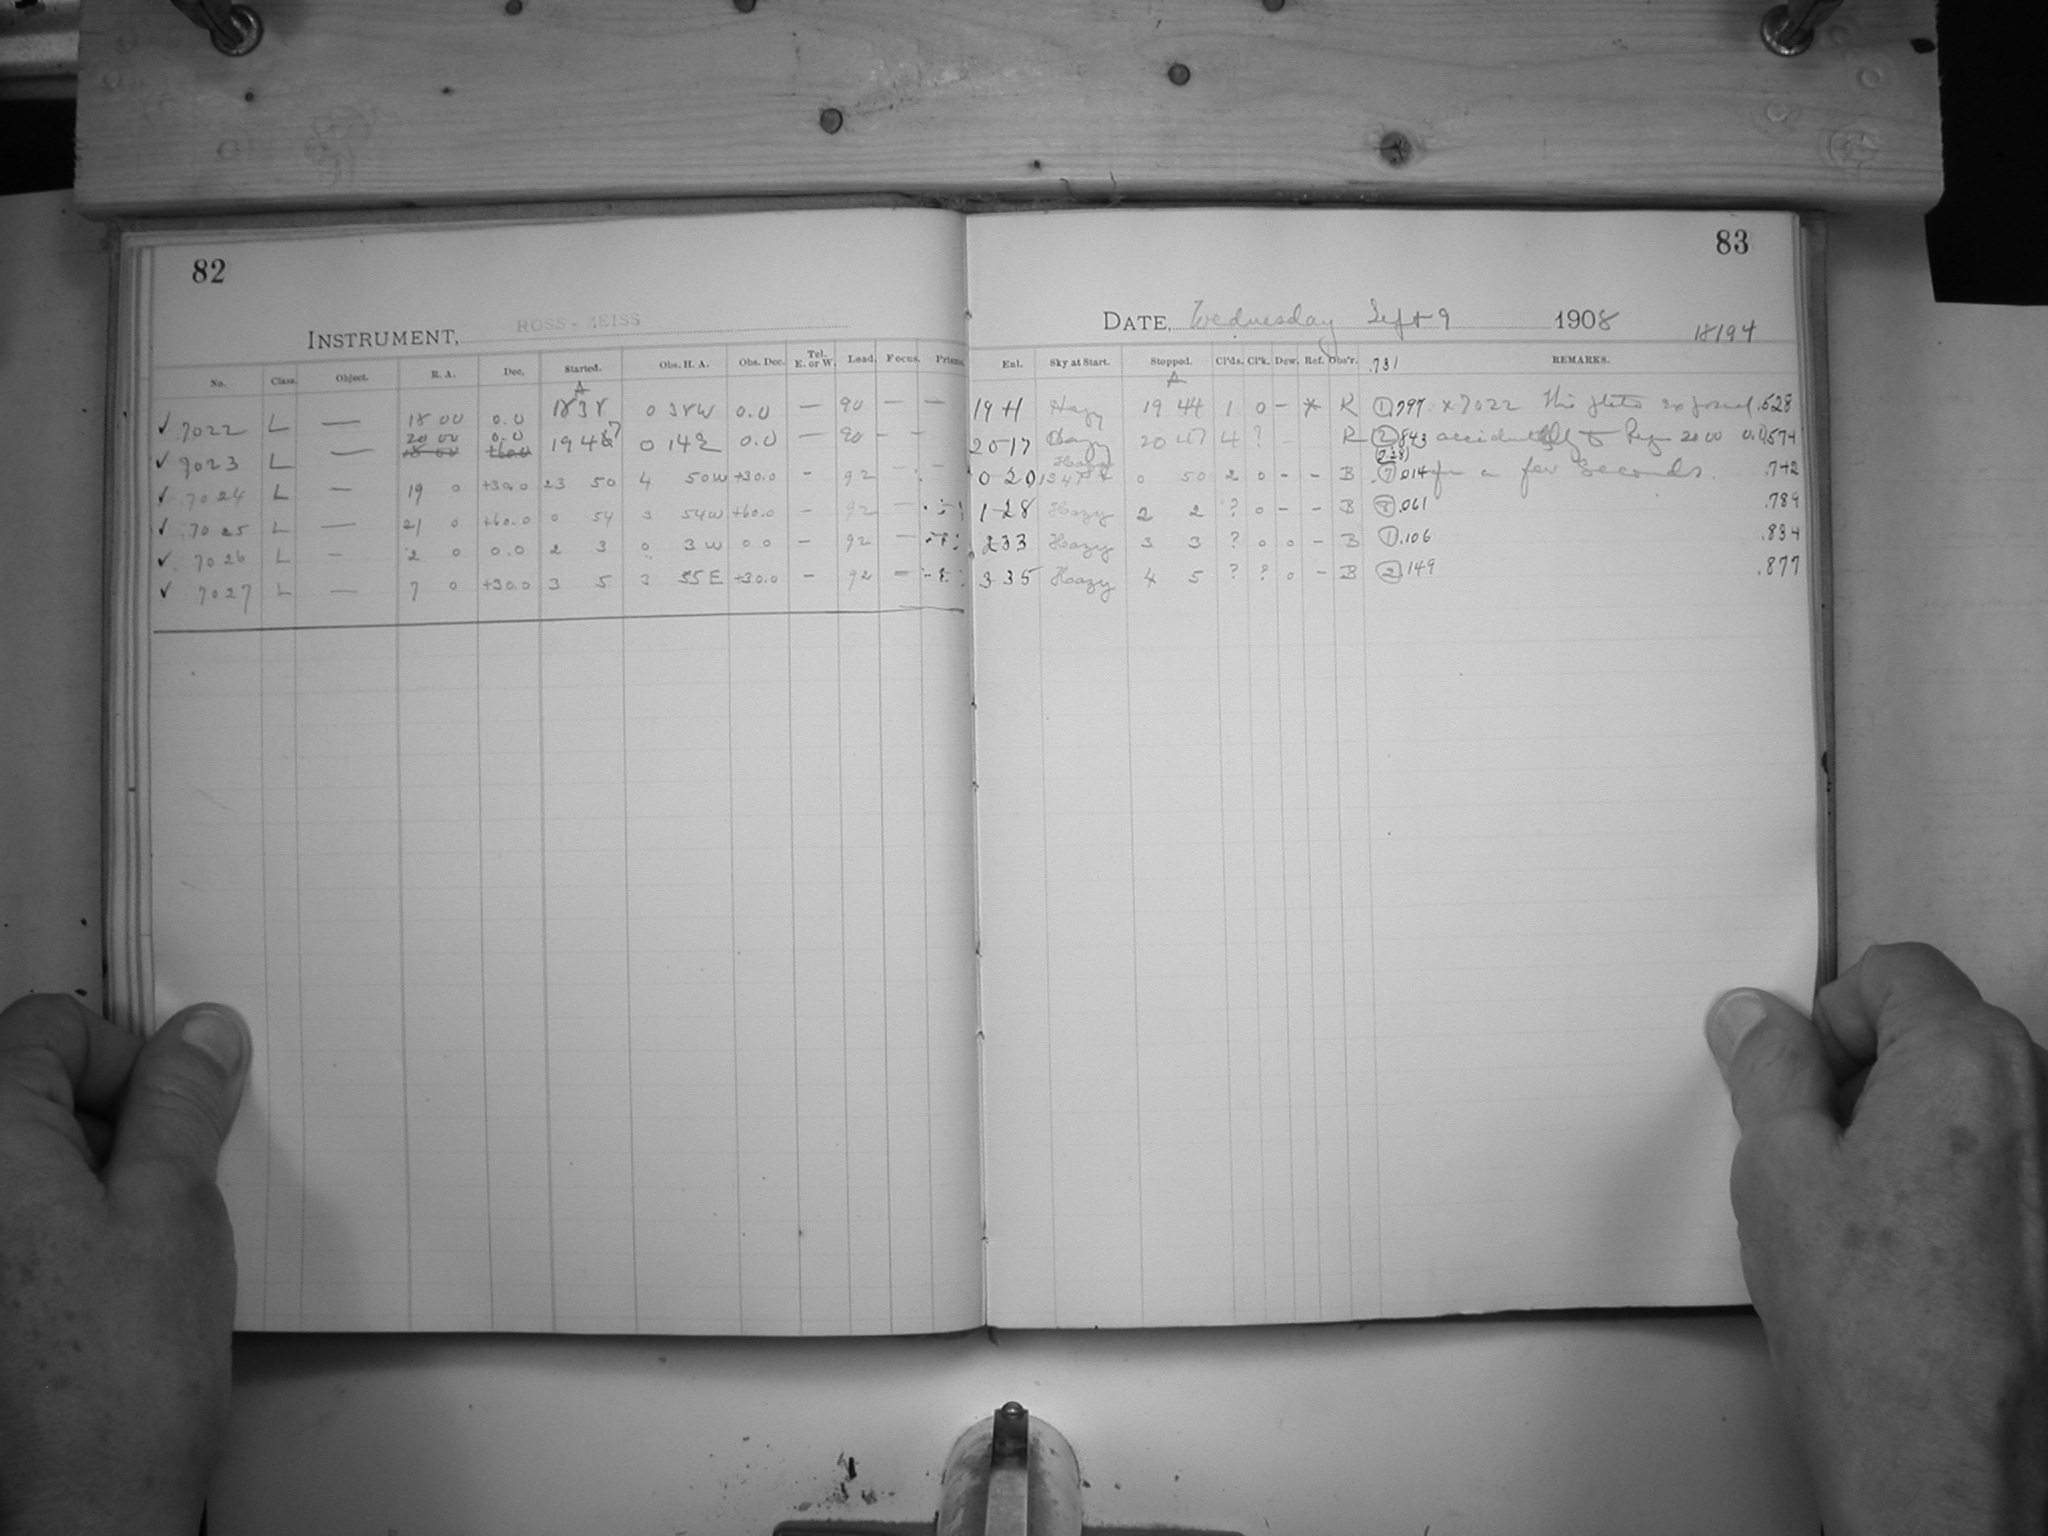 82
INSTRUMENT, ROSS-ZEISS
No. Class. Object. R. A. Dec. Started. Obs. H. A. Obs. Dec. Tel. E. or W. Load. Focus. Prisms.
A
✓ 7022 L — 18 00 0.0 18 38 0 38W 0.0 — 90 — —
20 00 0.0
✓ 7023 L — 18 00 +60.0 19 47 0 14E 0.0 — 90 — —
✓ 7024 L — 19 0 +30.0 23 50 4 50W +30.0 — 92 — —
✓ 7025 L — 21 0 +60.0 0 54 3 54W +60.0 — 92 —
✓ 7026 L — 2 0 0.0 2 3 0 3W 0.0 — 92 —
✓ 7027 L — 7 0 +30.0 3 5 3 55E +30.0 — 92 —
83
DATE, Wednesday Sept 9 1908
18194
Enl. Sky at Start. Stopped. Cl'ds. Cl'k. Dew. Ref. Obs'r. .731 REMARKS.
A
19 41 Hazy 19 44 1 0 — * R ① .797 x 7022 This plate exposed .528
20 17 Hazy 20 47 4 ? — R ② .843 accidentally to Reg. 20 00 0.0 .574
0 20 Hazy 0 50 2 0 — — B ⑦ .014 for a few seconds. .742
1 28 Hazy 2 2 ? 0 — — B ⑧ .061 .789
2 33 Hazy 3 3 ? 0 0 — B ① .106 .834
3 35 Hazy 4 5 ? ? 0 — B ② .149 .877